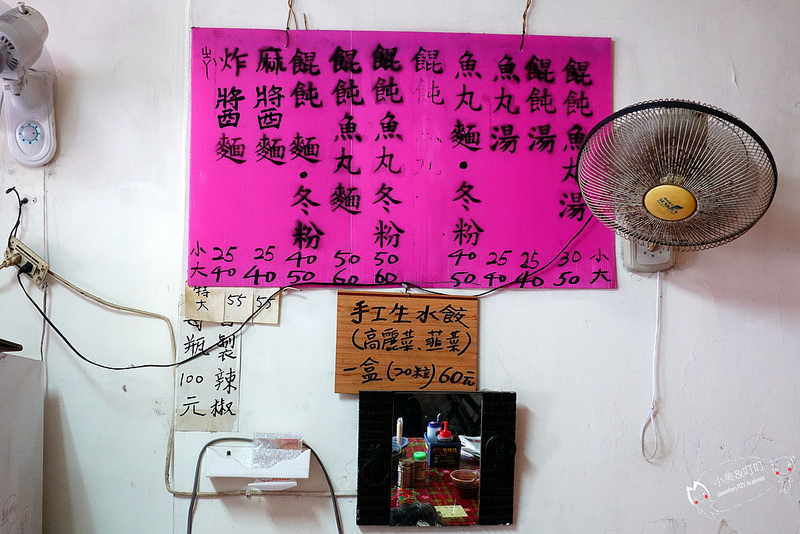 餛飩魚丸湯
餛飩湯
魚丸湯
魚丸麵•冬粉
餛飩
餛飩魚丸冬粉
餛飩魚丸麵
餛飩麵•冬粉
麻醬麵
炸醬麵
小 25 25 40 50 50 40 25 25 30 小
大 40 40 50 60 60 50 40 40 50 大
特大 55 55
自製辣椒
每瓶100元
手工生水餃
(高麗菜、韮菜)
一盒(20粒)60元